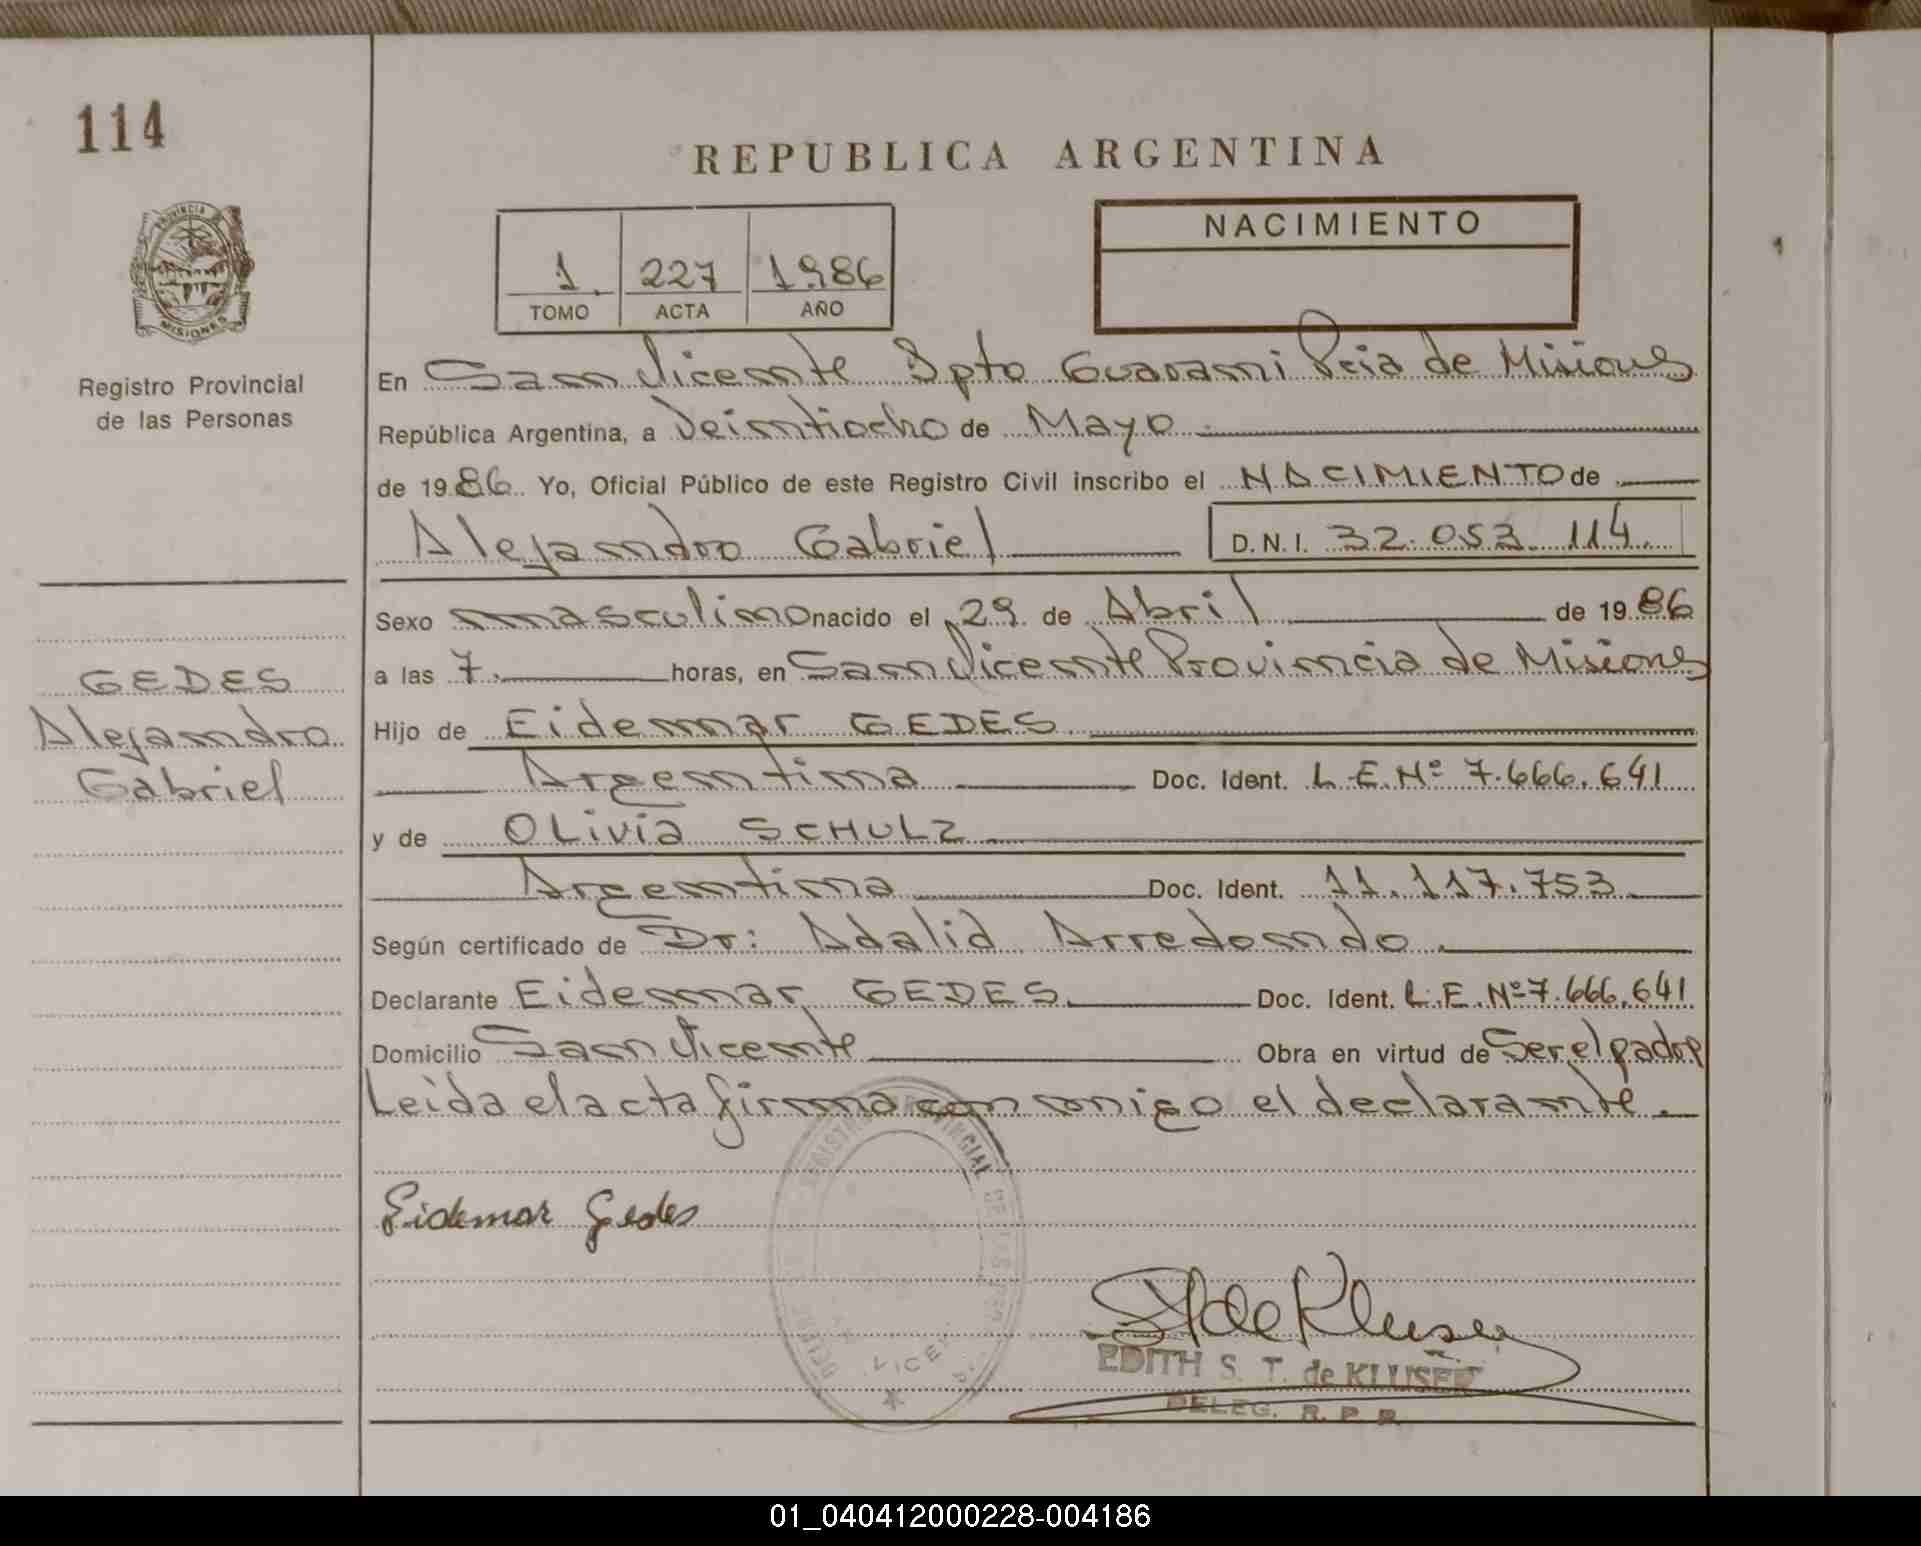 114
REPUBLICA ARGENTINA
PROVINCIA
MISIONES
Registro Provincial
de las Personas
1 227 1986
TOMO ACTA AÑO
NACIMIENTO
En San Vicente Dpto Guarani Pcia de Misiones
República Argentina, a Veintiocho de Mayo
de 1986 Yo, Oficial Público de este Registro Civil inscribo el NACIMIENTO de
Alejandro Gabriel D.N.I. 32.053.114
Sexo masculino nacido el 29 de Abril de 1986
a las 7 horas, en San Vicente Provincia de Misiones
GEDES
Alejandro
Gabriel
Hijo de Eidemar GEDES
Argentina Doc. Ident. L.E.Nº 7.666.641
y de OLivia SCHULZ
Argentina Doc. Ident. 11.117.753
Según certificado de Dr: Adalid Arredondo
Declarante Eidemar GEDES Doc. Ident. L.E.Nº 7.666.641
Domicilio San Vicente Obra en virtud de Ser el padre
Leida el acta firma con migo el declarante.
REGISTRO PROVINCIAL DE LAS
Eidemar Gedes
de Kluser
EDITH S. T. de KLUSER
DELEG. R. P. P.
01_040412000228-004186